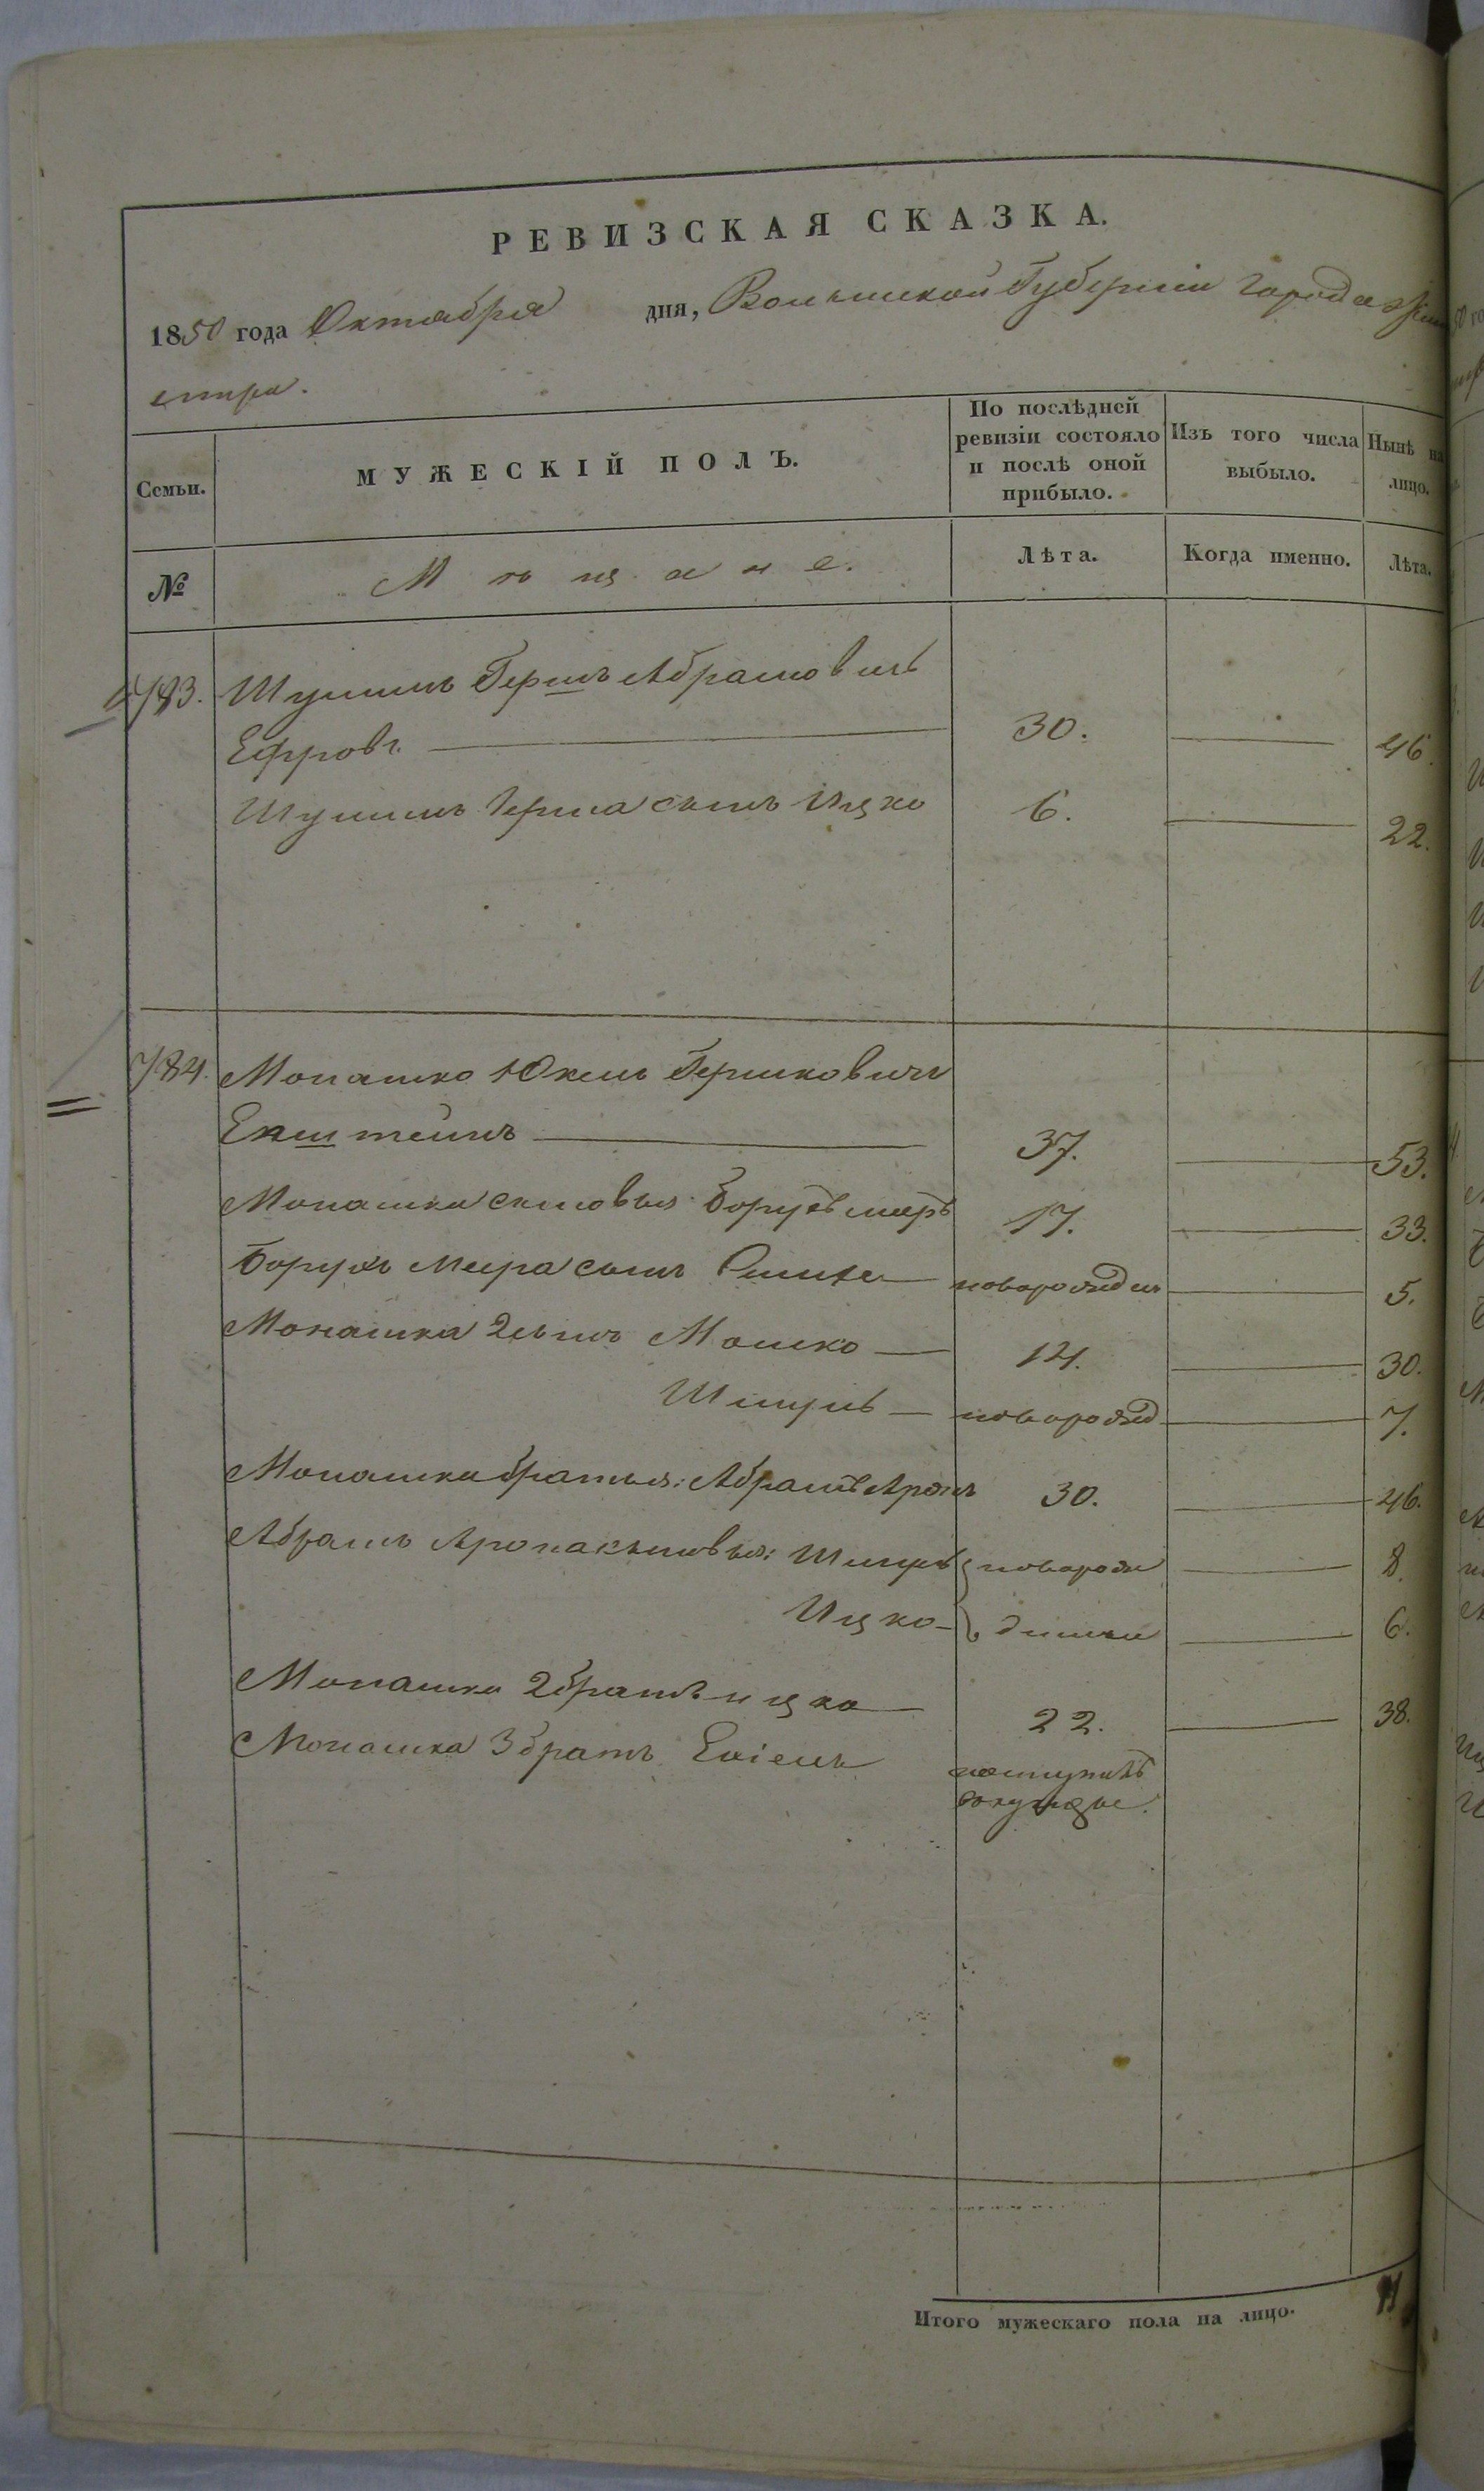 РЕВИЗСКАЯ СКАЗКА.
1850 года Октября дня, Волынской Губернии Города Жит
омира.
Семьи.
МУЖЕСКІЙ ПОЛЪ.
По послѣдней ревизіи состояло и послѣ оной прибыло.
Изъ того числа выбыло.
Нынѣ на лицо.
№
Мѣщане.
Лѣта.
Когда именно.
Лѣта.
783. Шулимъ Гершъ Абрамовичъ
Ефровъ 30. 46.
Шулимъ Герша сынъ Ицко 6. 22.
784. Монашко Юкель Гершковичъ
Екштейнъ 37. 53.
Монашка сыновья Борухъ мееръ 17. 33.
Борухъ Меера сынъ новорожден 5.
Монашка 2 сынъ Мошко 14. 30.
Шмуль новорожд 7.
Монашка братья: Абрамъ Аронъ 30. 46.
Абрамъ Арона сыновья: Шмуль новорож 8.
Ицко денные 6.
Монашка 2 братъ ицко 22. 38.
Монашка 3 братъ Ехіель поступилъ
вокупцы.
Итого мужескаго пола на лицо. 11